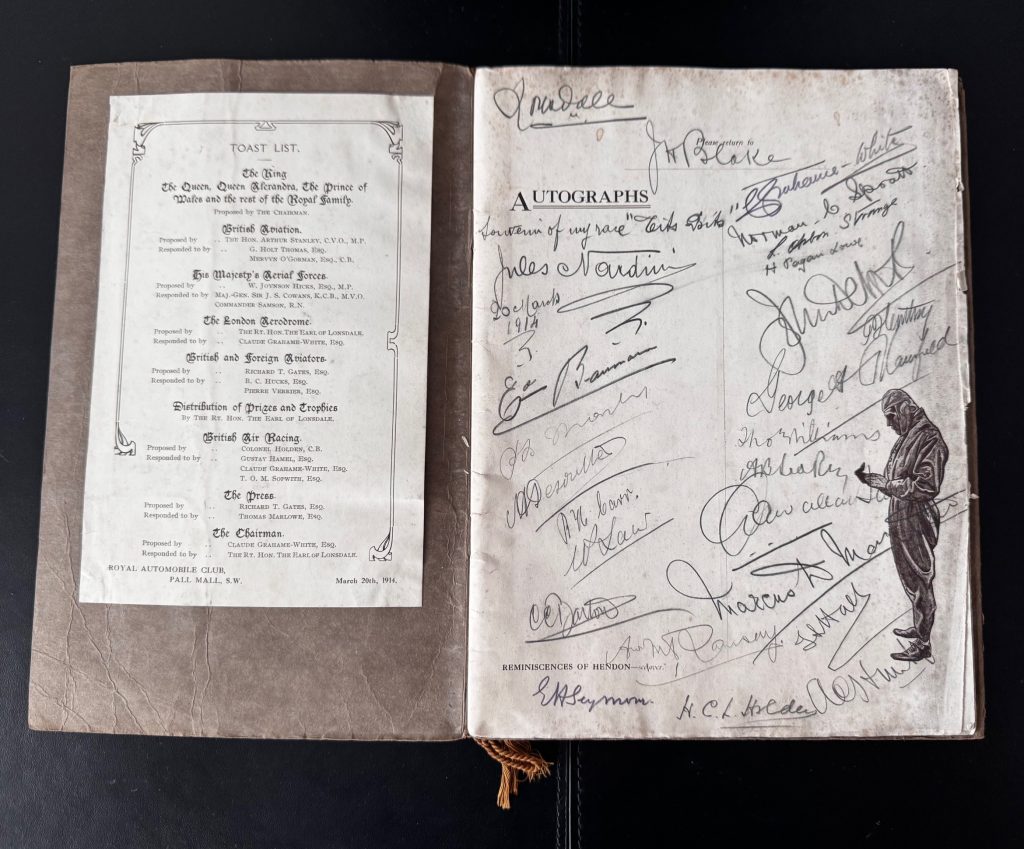 TOAST LIST.
The King
The Queen, Queen Alexandra, The Prince of
Wales and the rest of the Royal Family.
Proposed by THE CHAIRMAN.
British Aviation.
Proposed by .. THE HON. ARTHUR STANLEY, C.V.O., M.P.
Responded to by .. G. HOLT THOMAS, ESQ.
MERVYN O'GORMAN, ESQ., C.B.
His Majesty's Aerial Forces.
Proposed by .. W. JOYNSON HICKS, ESQ., M.P.
Responded to by MAJ.-GEN. SIR J. S. COWANS, K.C.B., M.V.O.
COMMANDER SAMSON, R.N.
The London Aerodrome.
Proposed by .. THE RT. HON. THE EARL OF LONSDALE.
Responded to by .. CLAUDE GRAHAME-WHITE, ESQ.
British and Foreign Aviators.
Proposed by .. RICHARD T. GATES, ESQ.
Responded to by .. B. C. HUCKS, ESQ.
PIERRE VERRIER, ESQ.
Distribution of Prizes and Trophies
By THE RT. HON. THE EARL OF LONSDALE.
British Air Racing.
Proposed by .. COLONEL HOLDEN, C.B.
Responded by .. GUSTAV HAMEL, ESQ.
CLAUDE GRAHAME-WHITE, ESQ.
T. O. M. SOPWITH, ESQ.
The Press.
Proposed by .. RICHARD T. GATES, ESQ.
Responded to by .. THOMAS MARLOWE, ESQ.
The Chairman.
Proposed by .. CLAUDE GRAHAME-WHITE, ESQ.
Responded to by .. THE RT. HON. THE EARL OF LONSDALE.
ROYAL AUTOMOBILE CLUB,
PALL MALL, S.W. March 20th, 1914.
Lonsdale
Please return to
J H Blake
AUTOGRAPHS
C Grahame-White
Souvenir of my race "Tits Bits"
Norman C Spratt
Jules Nardini
H Pagan Lowe
20 March
1914
E. Baumann
George H Mansfield
Tho Williams
R. H. Carr.
W Law
Marcus D Man
J H Hall
REMINISCENCES OF HENDON
E H Seymour.
H. C. L. Holden